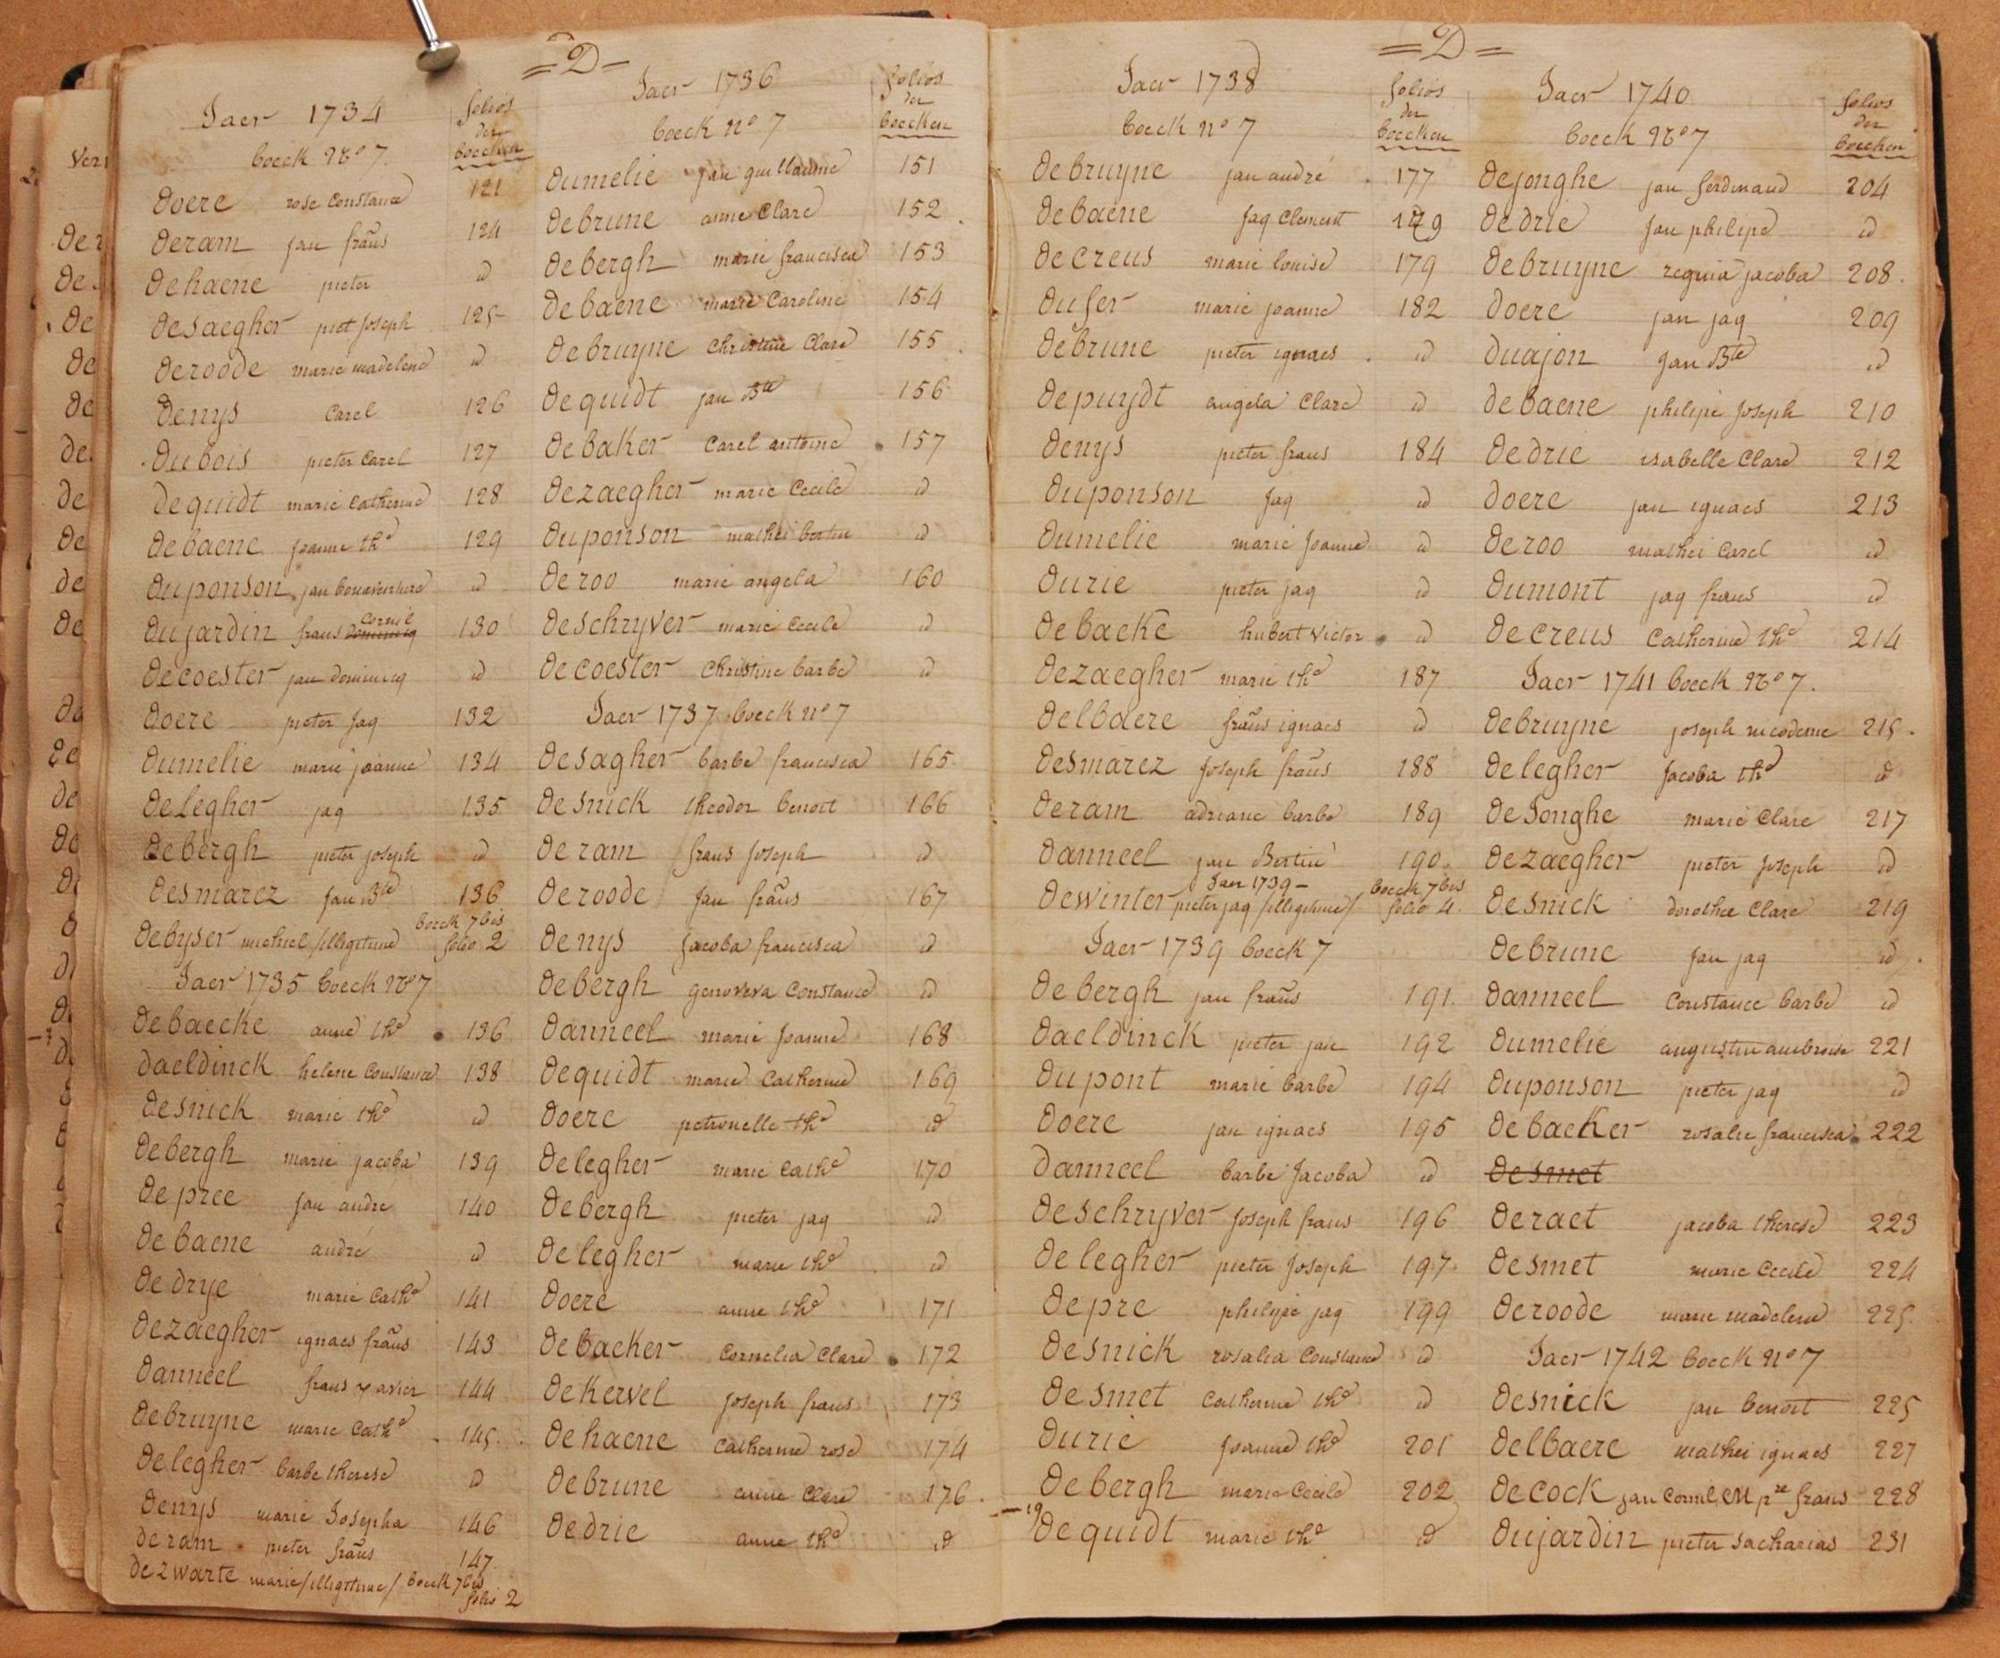 = D =
Jaer 1734
folios der boecken
boeck No 7.
Doere rose Constance 121
Deram jan frañs 124
Dehaene pieter id
Desaegher piet Joseph 125
Deroode marie madelene id
Denys Carel 126
Dubois pieter Carel 127
Dequidt marie Catherine 128
Debaene joanne the 129
Duponson jan bonaventure id
Dujardin frans dominicq Cornil 130
Decoester jan dominicq id
Doere pieter jaq 132
Dumelie marie joanne 134
Delegher jaq 135
Debergh pieter joseph id
Desmarez Jan Bte 136
Debyser michiel /illigitime boeck 7 bis folio 2
Jaer 1735 boeck No 7
Debaecke anne the 136
Daeldinck helene Constance 138
Desnick marie the id
Debergh marie jacoba 139
Depree Jan andre 140
Debaene andré id
Dedrye marie Cathe 141
Dezaegher ignaes frañs 143
Danneel frans xavier 144
Debruyne marie Cathe 145
Delegher barbe therese id
Denys marie Josepha 146
Deram pieter frañs 147
Dezwarte marie /illigitime/ boeck 7 bis folio 2
Jaer 1736
folios der boecken
boeck no 7
Dumelie jan guillaume 151
Debrune anne Clare 152
Debergh marie francisca 153
Debaene marie Caroline 154
Debruyne Christine Clare 155
Dequidt jan Bte 156
Debaker Carel antoine 157
Dezaegher marie Cecile id
Duponson mathei bertin id
Deroo marie angela 160
Deschryver marie Cecile id
Decoester Christine barbe id
Jaer 1737 boeck no 7
Desagher barbe francisca 165
Desnick theodor benoit 166
Deram frans Joseph id
Deroode Jan frañs 167
Denys Jacoba francisca id
Debergh genoveva Constance id
Danneel marie Joanne 168
Dequidt marie Catherine 169
Doere petronelle the id
Delegher marie Cathe 170
Debergh pieter jaq id
Delegher marie the id
Doere anne the 171
Debaeker Cornelia Clare 172
Dekervel Joseph frans 173
Dehaene Catherine rose 174
Debrune anne Clare 176
Dedrie anne the id
= D =
Jaer 1738
folios der boecken
boeck no 7
Debruyne jan andré 177
Debaene Jaq Clement 179
Decreus marie louise 179
Dufer marie joanne 182
Debrune pieter ignaes id
Depuydt angela Clare id
Denys pieter frans 184
Duponson Jaq id
Dumelie marie Joanne id
Durie pieter jaq id
Debaeke hubert victor id
Dezaegher marie the 187
Delbaere frañs ignaes id
Desmarez Joseph frañs 188
Deram adriane barbe 189
Danneel jan Bertin 190
Jaer 1739 –
Dewinter pieter jaq /illigitime/ boeck 7 bis folio 4.
Jaer 1739 boeck 7
Debergh jan frañs 191
Daeldinck pieter jan 192
Dupont marie barbe 194
Doere jan ignaes 195
Danneel barbe Jacoba id
Deschryver Joseph frans 196
Delegher pieter Joseph 197
Depre philipe jaq 199
Desnick rosalia Constance id
Desmet Catherine the id
Durie Joanne the 201
Debergh marie Cecile 202
Dequidt marie the id
Jaer 1740
folios der boecken
boeck No 7
Dejonghe jan ferdinand 204
Dedrie Jan philipe id
Debruyne reguia jacoba 208
Doere jan jaq 209
Duajon Jan Bte id
Debaene philipe Joseph 210
Dedrie isabelle Clare 212
Doere jan ignaes 213
Deroo mathei Carel id
Dumont jaq frans id
Decreus Catherine the 214
Jaer 1741 boeck No 7.
Debruyne joseph nicodeme 215
Delegher Jacoba the id
DeJonghe marie Clare 217
Dezaegher pieter Joseph id
Desnick dorothee Clare 219
Debrune Jan jaq id
Danneel Constance barbe id
Dumelie augustin ambroise 221
Duponson pieter jaq id
Debaeker rosalie francisca 222
Desmet
Deraet jacoba therese 223
Desmet marie Cecile 224
Deroode marie madelene 225
Jaer 1742 boeck No 7
Desnick jan benoit 225
Delbaere mathei ignaes 227
Decock jan Cornil, EM pre frans 228
Dujardin pieter sacharias 231